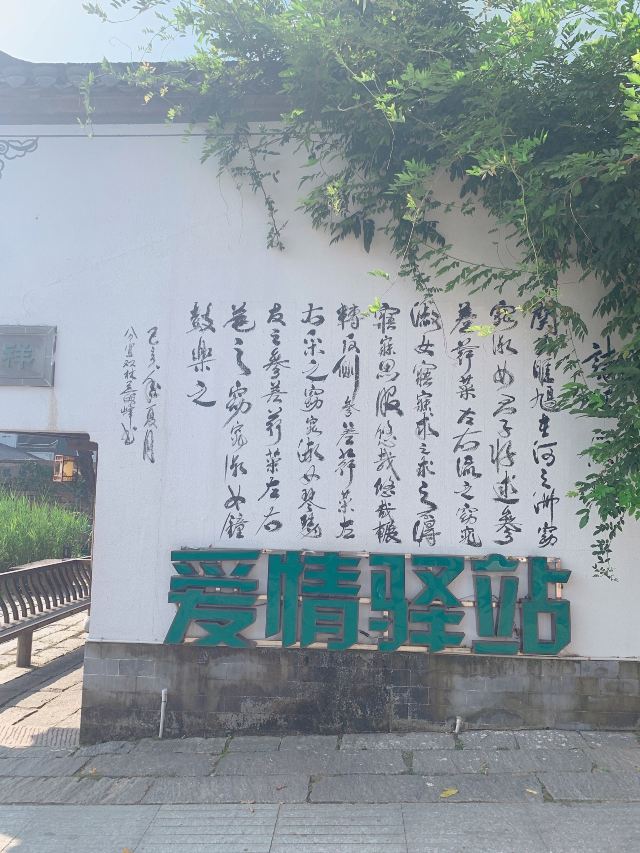 詩
關雎鳩在河之洲窈
窕淑女君子好逑參
差荇菜左右流之窈窕
淑女寤寐求之求之不得
寤寐思服悠哉悠哉輾
轉反側參差荇菜左
右采之窈窕淑女琴瑟
友之參差荇菜左右
芼之窈窕淑女鐘
鼓樂之
己亥年夏月
分宜双林
爱情驿站
祥